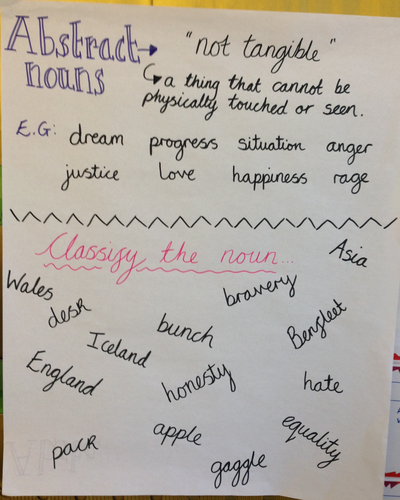 Abstract → "not tangible"
nouns ↳ a thing that cannot be
physically touched or seen.
E.G: dream progress situation anger
justice love happiness rage
Classify the noun...
Asia
Wales
bravery
desk
Benfleet
bunch
Iceland
England
honesty
hate
apple
equality
pack
gaggle